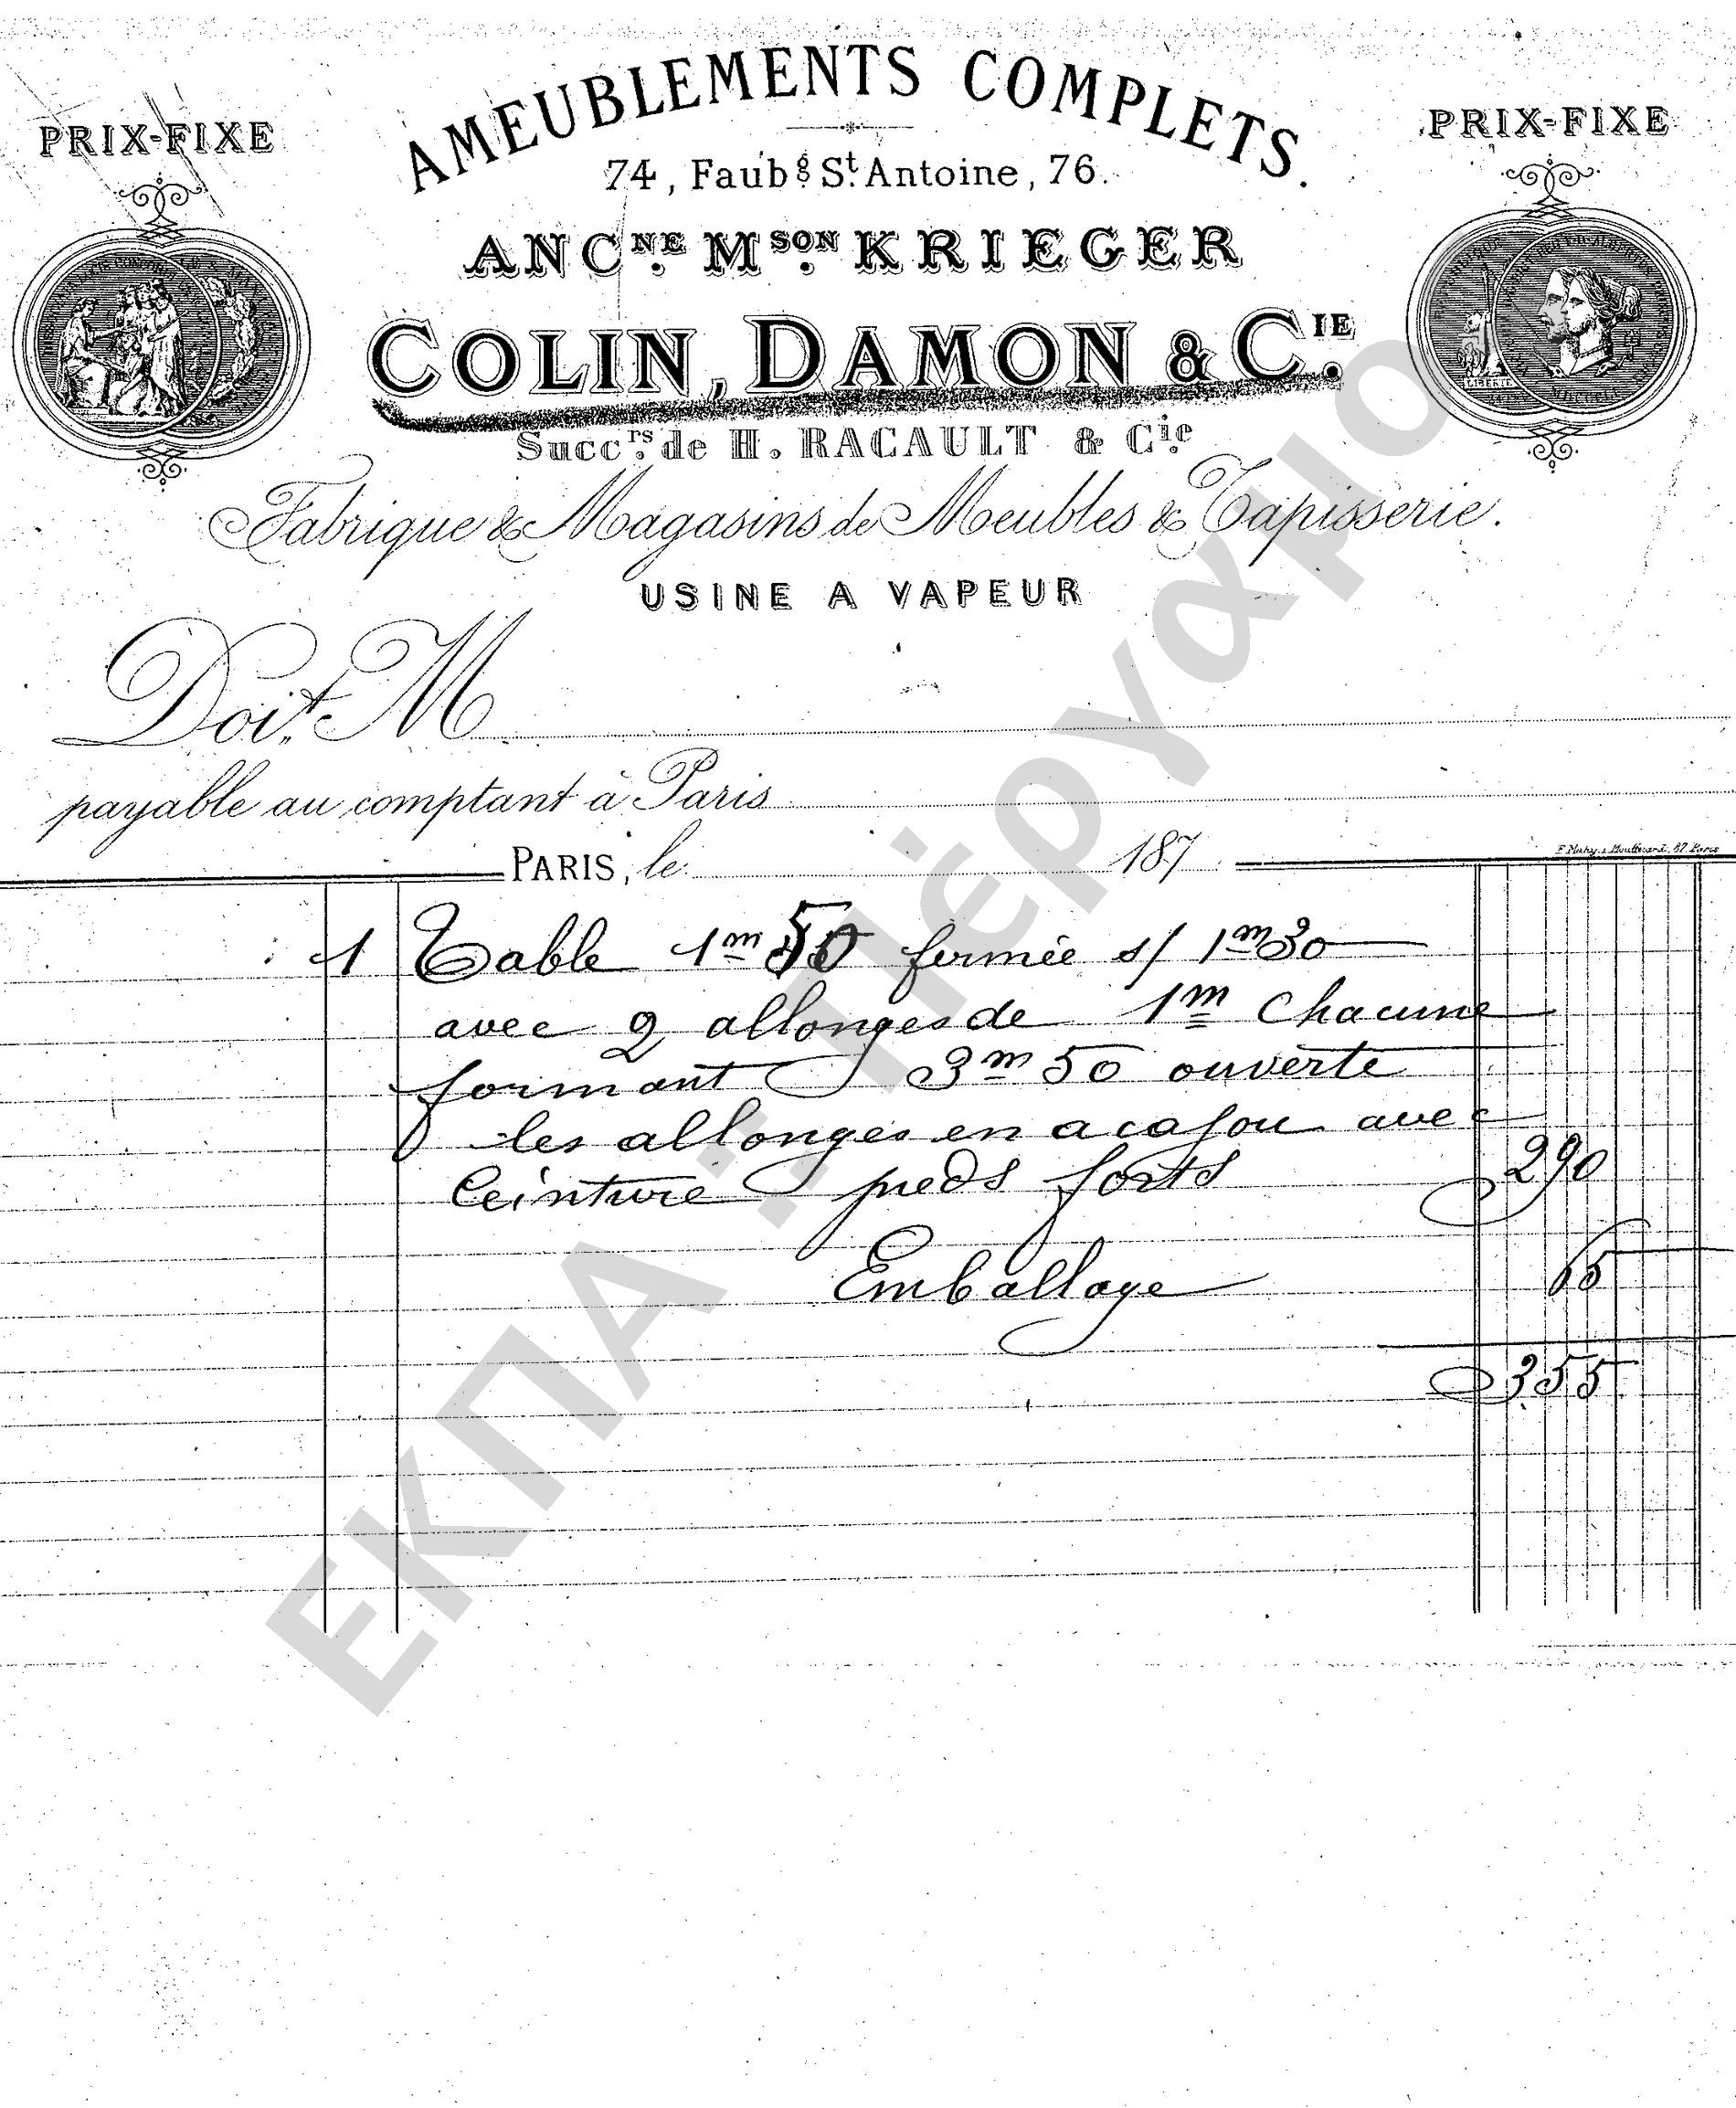 AMEUBLEMENTS COMPLETS.
PRIX-FIXE
PRIX-FIXE
74, Faubg. St. Antoine, 76.
ANCNE. MSON. KRIEGER
COLIN, DAMON & CIE.
Succrs. de H. RACAULT & Cie.
Fabrique & Magasins de Meubles & Tapisserie.
USINE A VAPEUR
LIBERTE
Doit M
payable au comptant à Paris
PARIS, le 187
1 Table 1m 50 fermée s/ 1m 30
avec 2 allonges de 1m chacune
formant 3m 50 ouverte
les allonges en acajou avec
Ceinture pieds forts 290
Emballage 65
355
ΕΚΠΑ - Πέργαμος